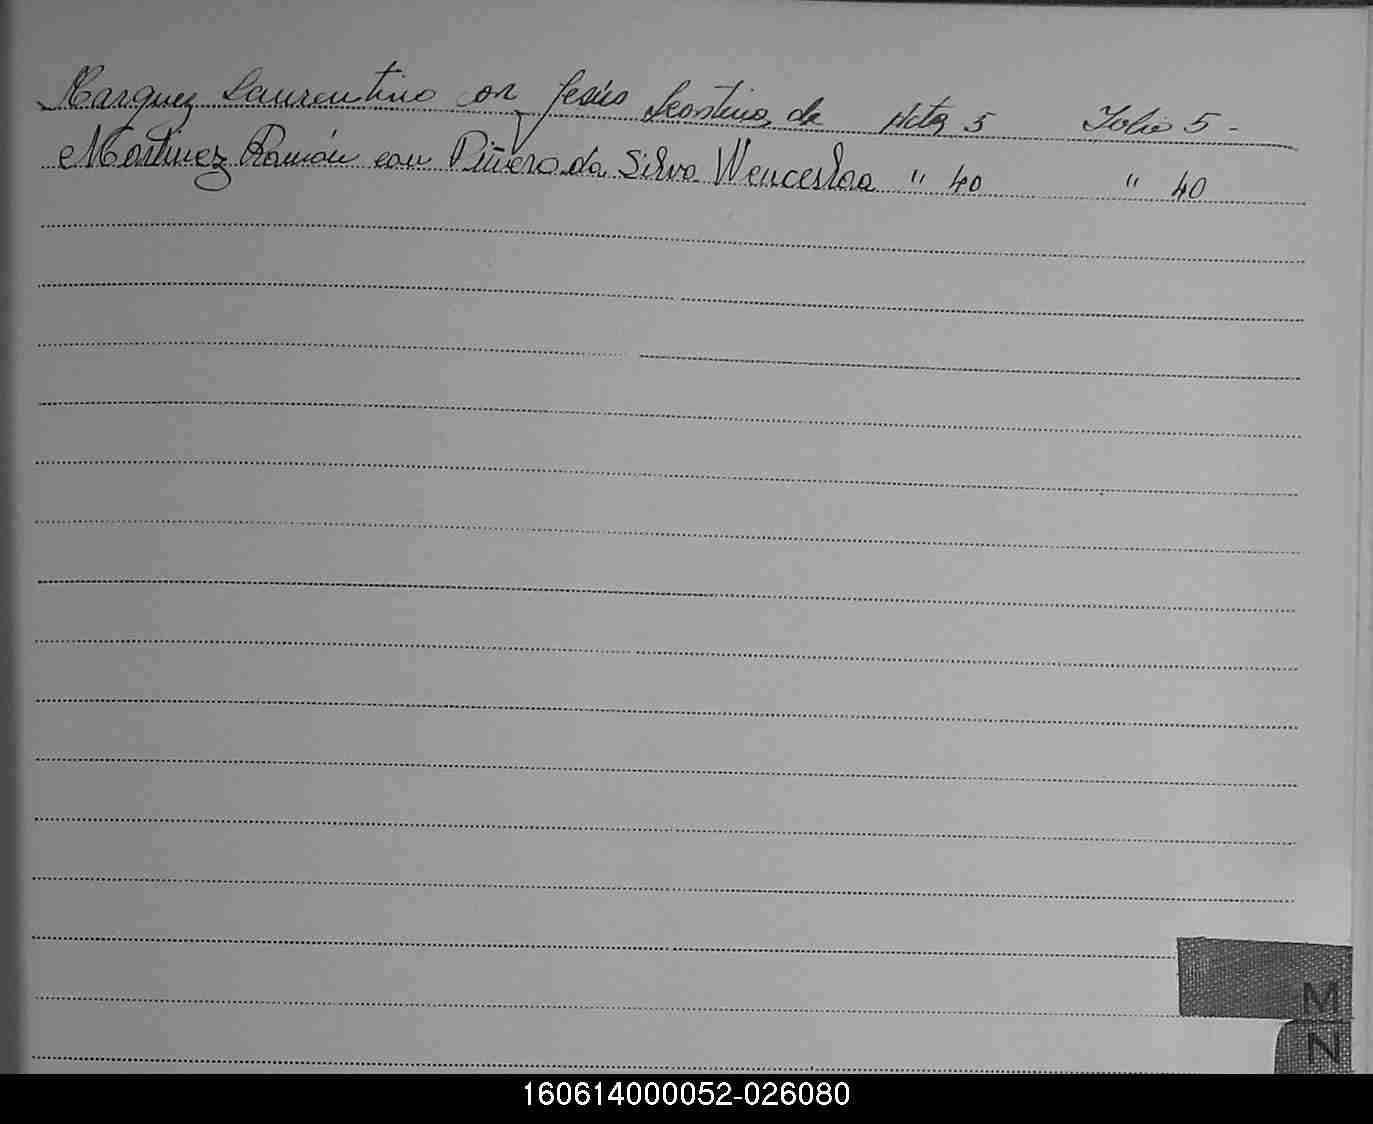 Marquez Laurentino con Jesús Leontina de Acta 5 Folio 5 -
Martinez Ramón con Piñero da Silva Wenceslaa " 40 " 40
M
N
160614000052-026080